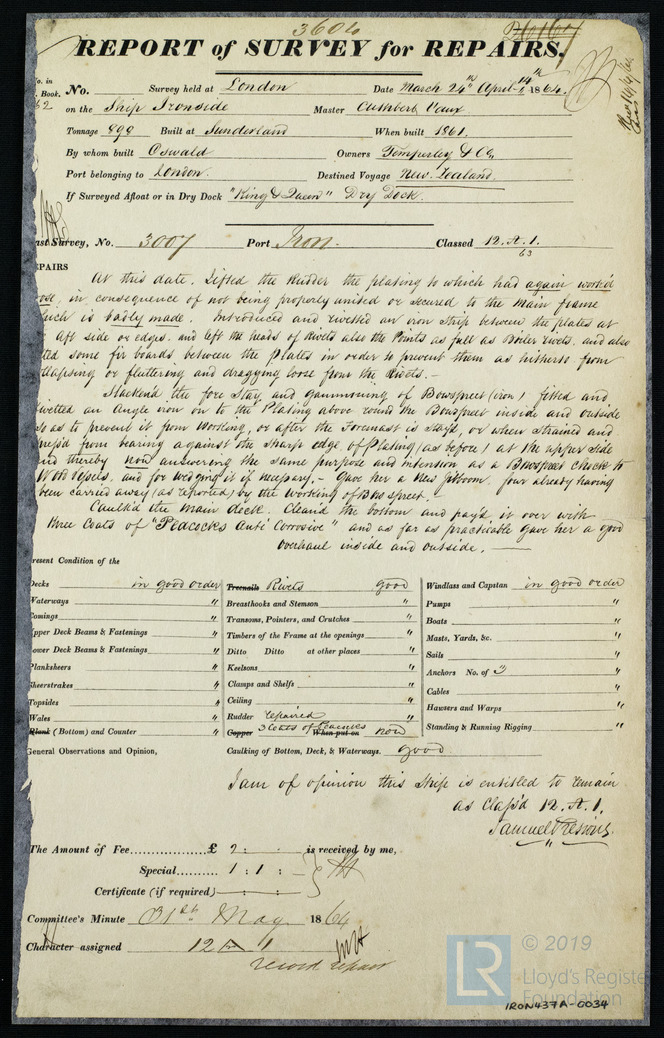 3604
REPORT of SURVEY for REPAIRS.
No. in
Book. No. Survey held at London Date March 24th April 14th 1864.
62 on the Ship Ironside Master Cuthbert Vaux
Tonnage 898 Built at Sunderland When built 1861.
By whom built Oswald Owners Temperley & Co,
Port belonging to London. Destined Voyage New Zealand.
If Surveyed Afloat or in Dry Dock "King & Queen" Dry Dock.
ast Survey, No. 3007 Port Iron. Classed 12.A.1.
63
EPAIRS
At this date. Lifted the Rudder the plating to which had again work'd
ose, in consequence of not being properly united or secured to the main frame
hich is badly made. Introduced and rivetted an iron strip between the plates at
aft side or edges. and left the heads of Rivets also the Points as full as Boiler rivets. and also
ted some fir boards between the Plates in order to prevent them as hitherto from
ollapsing or fluttering and dragging loose from the Rivets.-
Slacken'd the fore Stay and gammoning of Bowspreet (iron) fitted and
ivetted an Angle iron on to the Plating above round the Bowspreet inside and outside
so as to prevent it from working, or after the Foremast is stay'd, or when strained and
press'd from bearing against the sharp edge of Plating (as before) at the upper side
and thereby now answering the same purpose and intension as a Bowspreet chock to
Wood Vessels, and for wedging it if necessary.- Gave her a New jibboom. four already having
been carried away (as reported) by the working of Bowspreet.
Caulk'd the main deck. Clean'd the bottom and pay'd it over with
three Coats of "Peacocks Anti Corrosive" and as far as practicable gave her a good
overhaul inside and outside.
resent Condition of the
Decks in good order Treenails Rivets good Windlass and Capstan in good order
Waterways " Breasthooks and Stemson " Pumps "
Comings " Transoms, Pointers, and Crutches " Boats "
Upper Deck Beams & Fastenings " Timbers of the Frame at the openings " Masts, Yards, &c. "
Lower Deck Beams & Fastenings " Ditto Ditto at other places " Sails "
Planksheers " Keelsons " Anchors No. of 3 "
Sheerstrakes " Clamps and Shelfs " Cables "
Topsides " Ceiling " Hawsers and Warps "
Wales " Rudder repaired Standing & Running Rigging "
Plank (Bottom) and Counter " Copper 3 Coats of Peacocks When put on now
General Observations and Opinion, Caulking of Bottom, Deck, & Waterways. good
I am of opinion this Ship is entitled to remain
as Class'd 12.A.1.
Samuel Pressious
The Amount of Fee £ 2 : : is received by me,
Special 1 : 1 : -
Certificate (if required) : :
Committee's Minute 31st May 1864
Character assigned 12 A 1
record repair
© 2019
LR
Lloyd's Registe
Foundation
IRON437A-0034